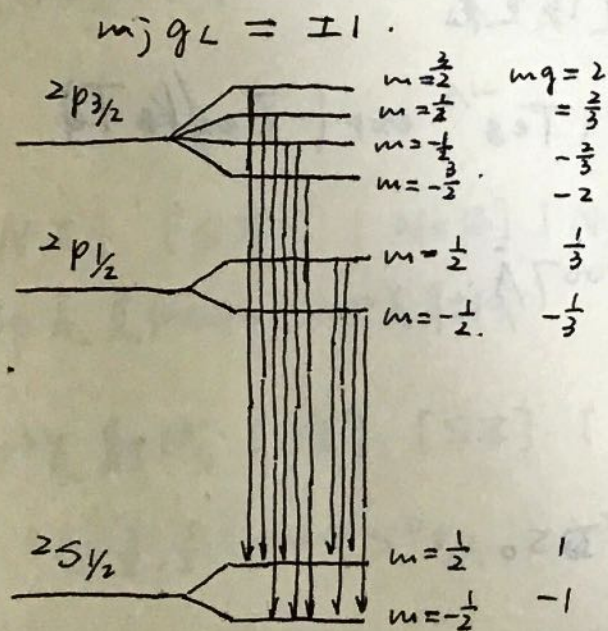 mj gL = ±1.
²P3/2 m = 3/2 mg = 2
m = 1/2 = 2/3
m = -1/2 -2/3
m = -3/2 . -2
²P1/2 m = 1/2 1/3
m = -1/2. -1/3
²S1/2 m = 1/2 1
m = -1/2 -1